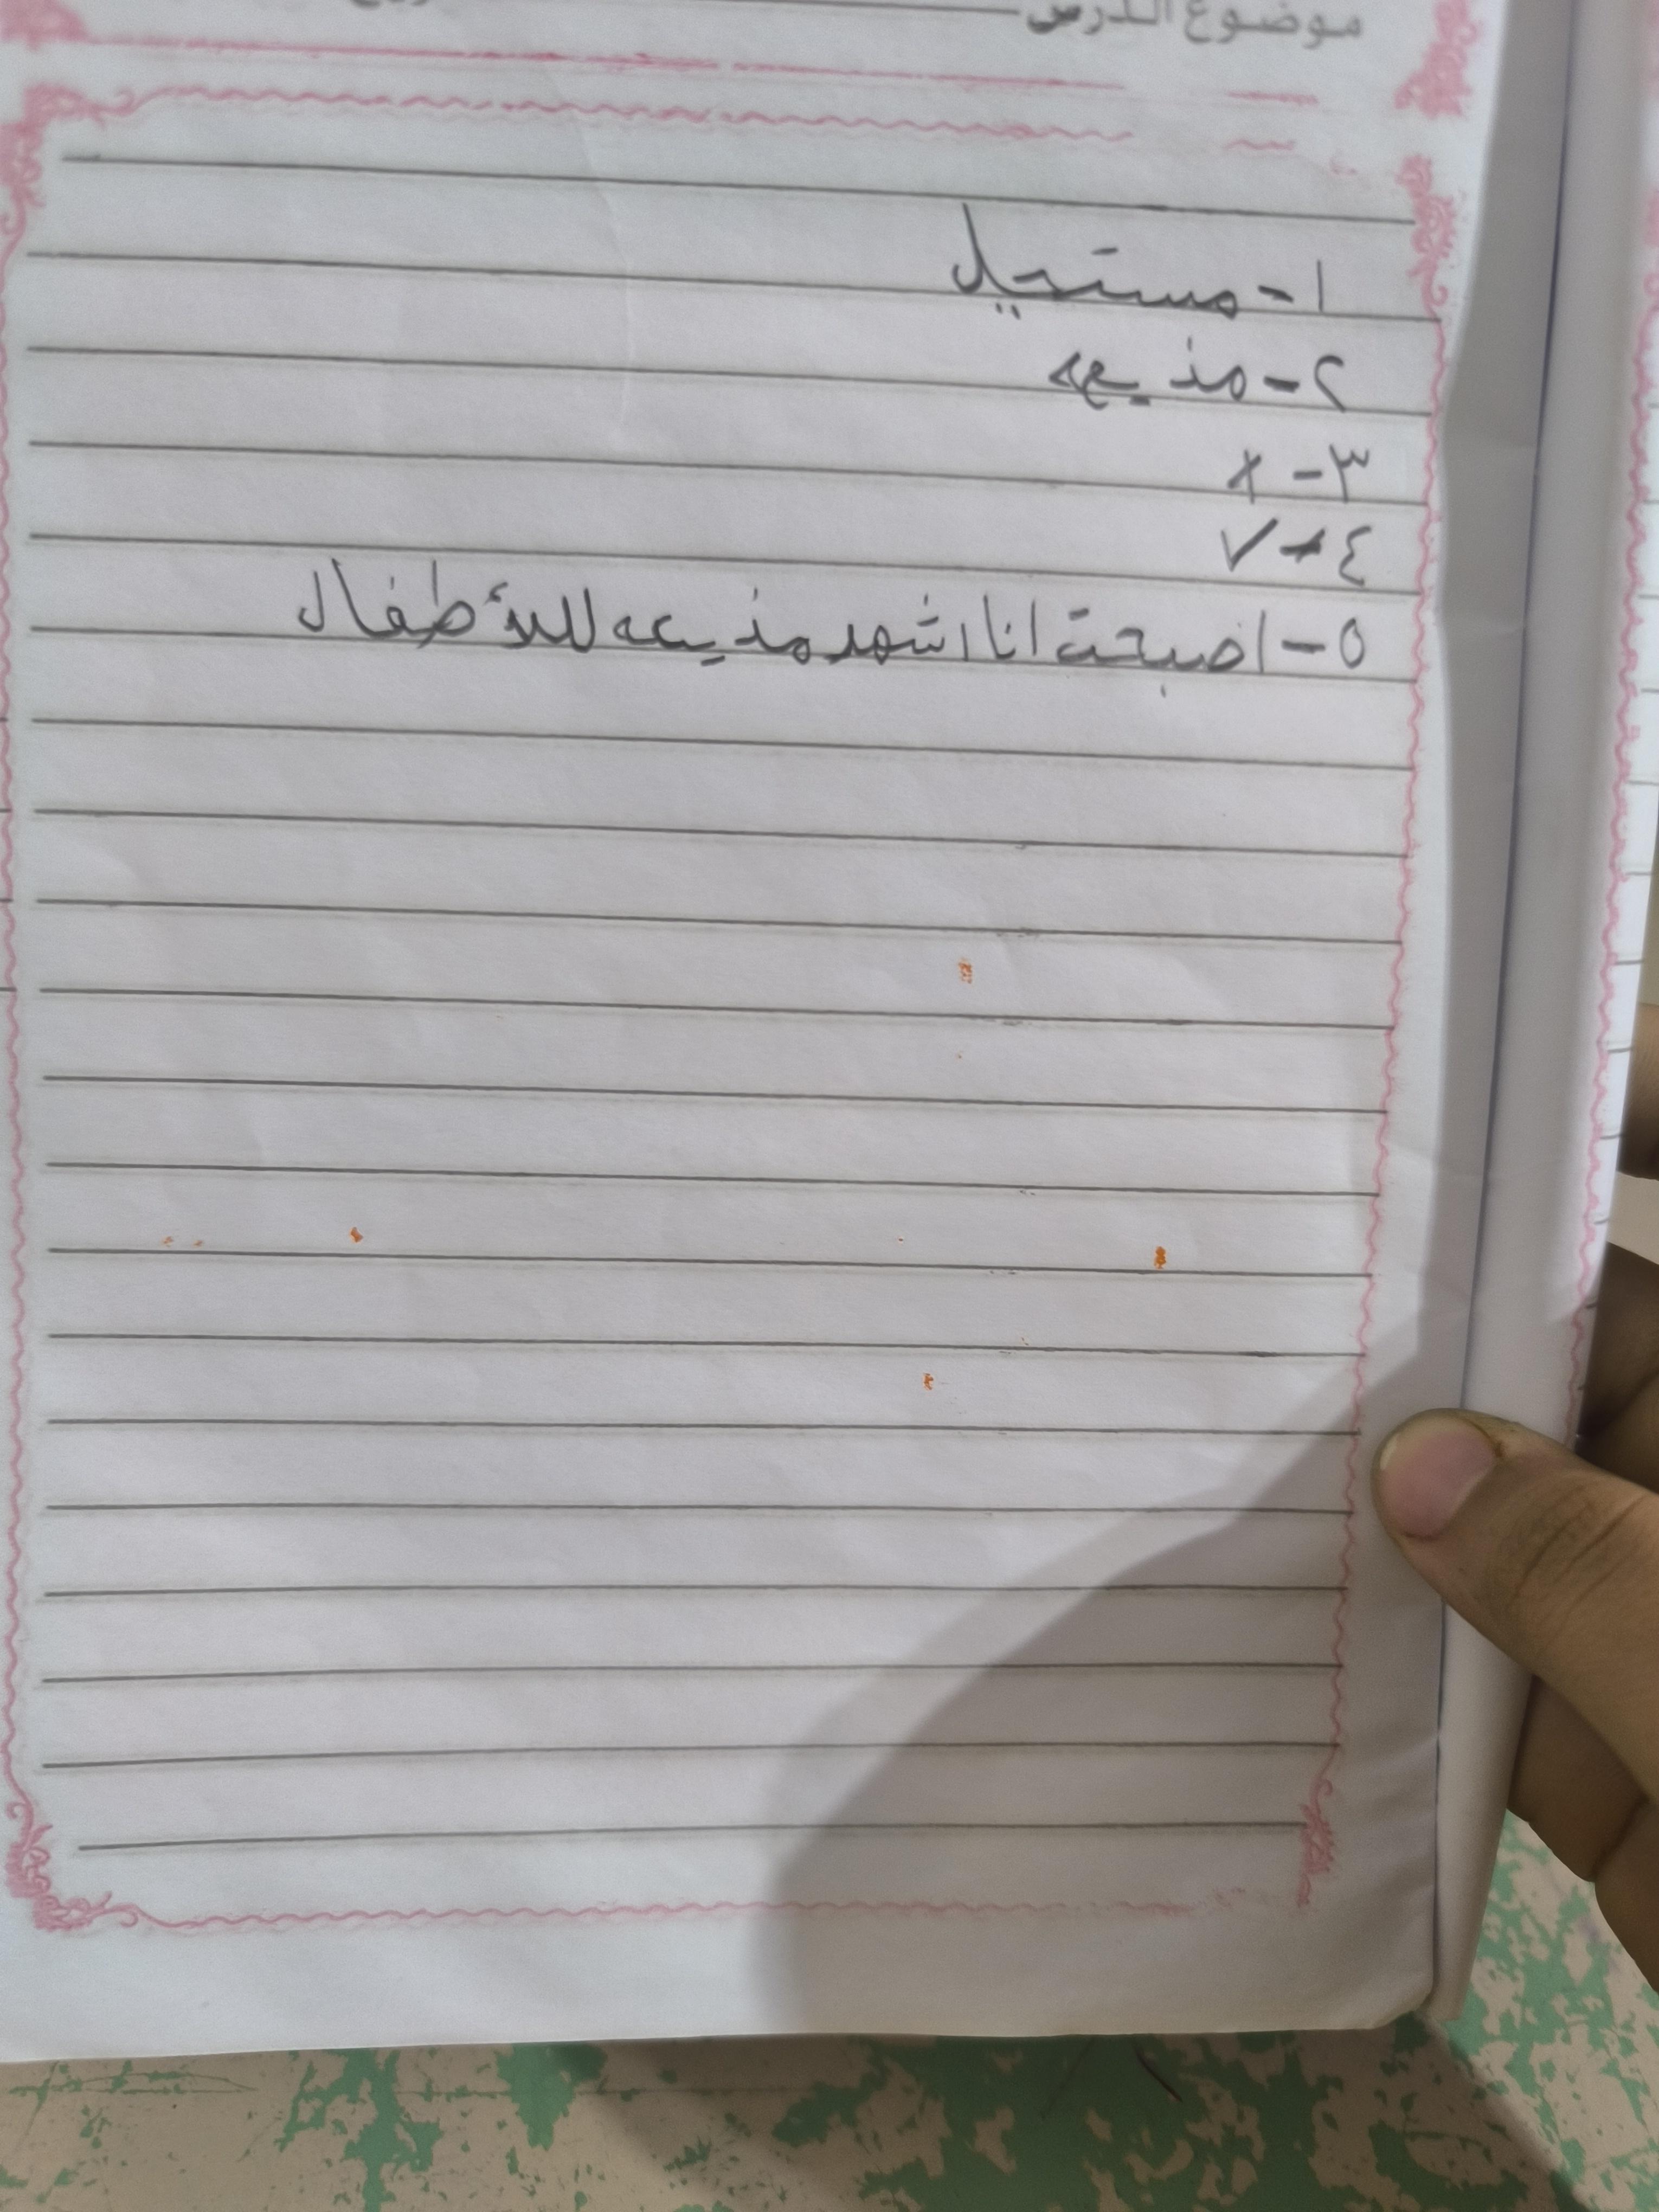 موضوع الدرس
١- مستحيل
٢- مذيعه
٣- ×
٤- ✓
٥- اصبحت انا اشهد مذيعه للأطفال